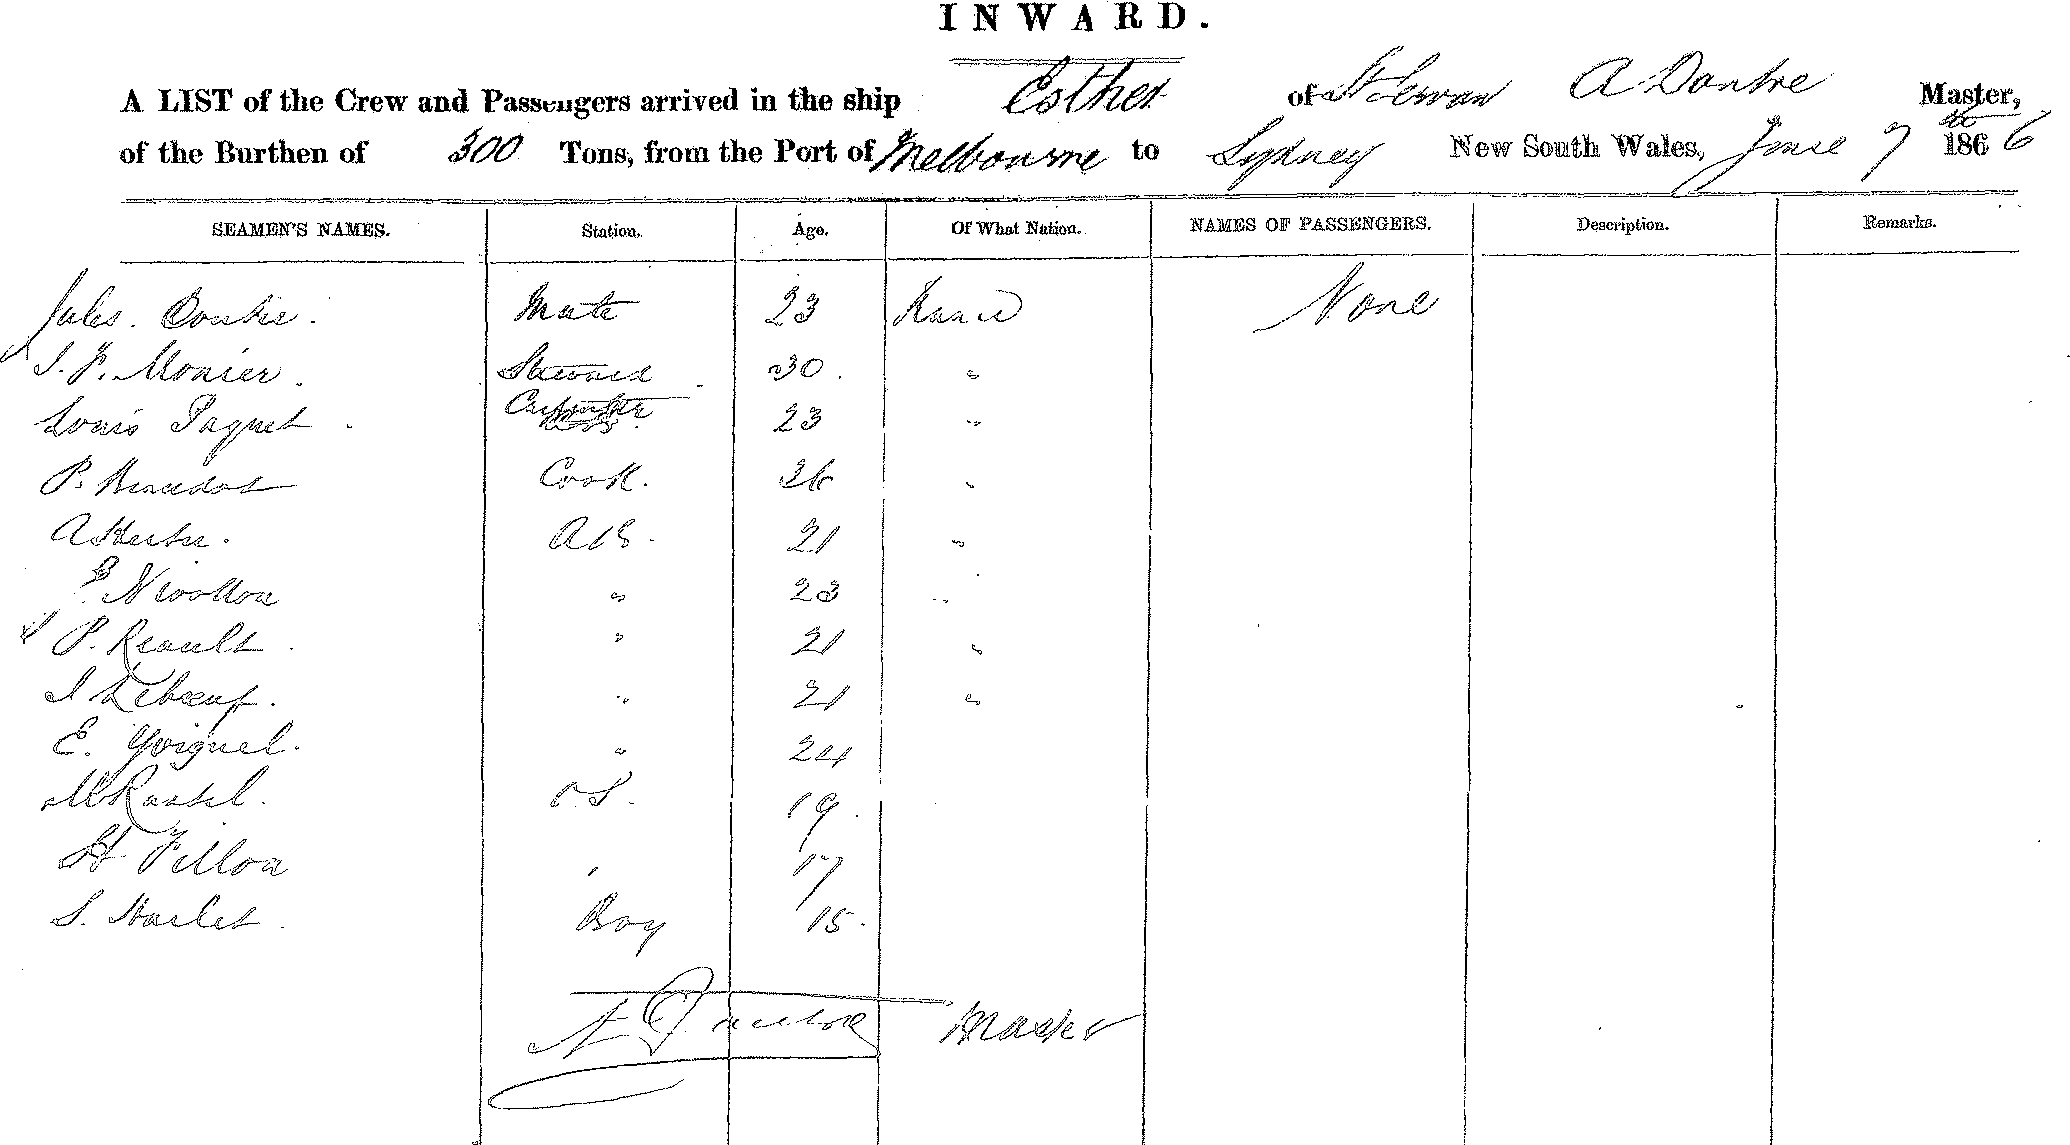 INWARD.
A LIST of the Crew and Passengers arrived in the ship Esther of St Servan A Dautre Master,
of the Burthen of 300 Tons, from the Port of Melbourne to Sydney New South Wales, June 7th 1866
SEAMEN'S NAMES. Station. Age. Of What Nation. NAMES OF PASSENGERS. Description. Remarks.
Jules Mate 23 France None
J. F. Monier. Steward 30 "
Louis Paquet Carpenter 23 "
P. Cook. 26 "
A AB. 21 "
" 23 "
P. Reault " 21 "
J Leboeuf. " 21 "
E. " 24
M O S. 19
H Fillon " 17
S. Harlet Boy 15
A Master